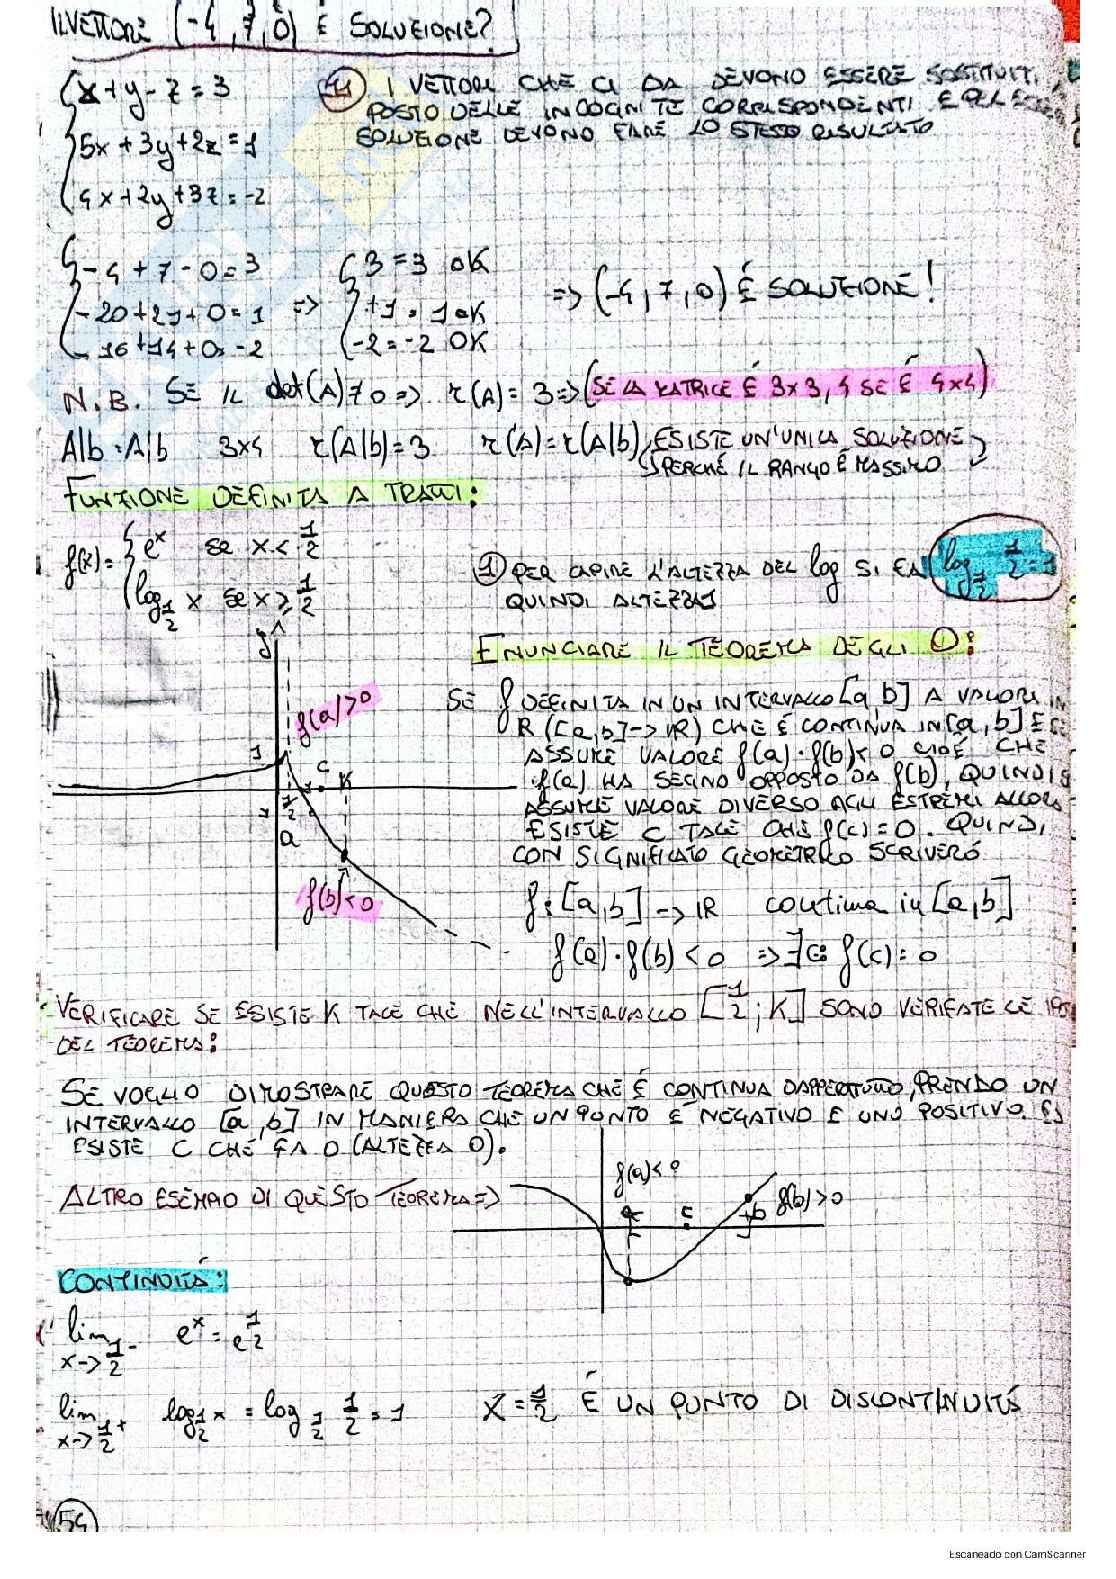 IL VETTORE (-4, 7, 0) È SOLUZIONE?
{x+y-z=3
5x+3y+2z=1
4x+2y+3z=-2
I VETTORI CHE CI DA DEVONO ESSERE SOSTITUITI
POSTO DELLE INCOGNITE CORRISPONDENTI E PER ESSERE
SOLUZIONE DEVONO FARE LO STESSO RISULTATO
{-4+7-0=3
-20+21+0=1
-16+14+0=-2
=>
{3=3 OK
+1=1 OK
-2=-2 OK
=> (-4, 7, 0) È SOLUZIONE!
N.B. SE IL det(A)≠0 => r(A)=3 => (SE LA MATRICE È 3x3, 4 SE È 4x4)
A|b = A|b 3x4 r(A|b)=3 r(A)=r(A|b), ESISTE UN'UNICA SOLUZIONE
PERCHÉ IL RANGO È MASSIMO
FUNZIONE DEFINITA A TRATTI:
f(x)= {e^x se x < 1/2
log_{1/2} x se x ≥ 1/2
① PER CAPIRE L'ALTEZZA DEL log SI FA log_{1/2} 1/2 = 1
QUINDI ALTEZZA 1
y
f(a)>0
1
c
K
1/2
a
f(b)<0
ENUNCIARE IL TEOREMA DEGLI 0:
SE f DEFINITA IN UN INTERVALLO [a, b] A VALORI IN
R ([a,b]->R) CHE È CONTINUA IN [a,b] E SE
ASSUME VALORE f(a)·f(b)<0 CIOÈ CHE
f(a) HA SEGNO OPPOSTO DA f(b), QUINDI
ASSUME VALORE DIVERSO AGLI ESTREMI ALLORA
ESISTE C TALE CHE f(c)=0. QUINDI,
CON SIGNIFICATO GEOMETRICO SCRIVERÓ
f:[a,b] -> R continua in [a,b]
f(a)·f(b)<0 => ∃c: f(c)=0
VERIFICARE SE ESISTE K TALE CHE NELL'INTERVALLO [1/2; K] SONO VERIFATE LE
DEL TEOREMA:
SE VOGLIO DIMOSTRARE QUESTO TEOREMA CHE È CONTINUA DAPPERTUTTO, PRENDO UN
INTERVALLO [a,b] IN MANIERA CHE UN PUNTO È NEGATIVO E UNO POSITIVO.
ESISTE C CHE FA 0 (ALTEZZA 0).
ALTRO ESEMPIO DI QUESTO TEOREMA =>
f(a)<0
c
b
f(b)>0
CONTINUITÀ:
lim x->1/2- e^x = e^{1/2}
lim x->1/2+ log_{1/2} x = log_{1/2} 1/2 = 1 X=1/2 È UN PUNTO DI DISCONTINUITÀ
54
Escaneado con CamScanner